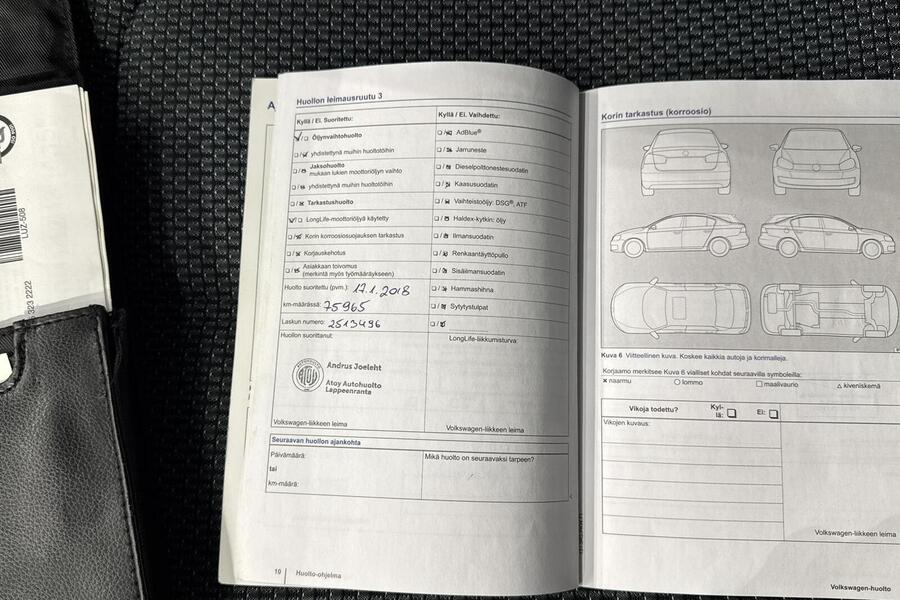 LUZ-508
323 2222
A
Huollon leimausruutu 3
Kyllä / Ei. Suoritettu:
Öljynvaihtohuolto
yhdistettynä muihin huoltotöihin
Jaksohuolto
mukaan lukien moottoriöljyn vaihto
yhdistettynä muihin huoltotöihin
Tarkastushuolto
LongLife-moottoriöljyä käytetty
Korin korroosiosuojauksen tarkastus
Korjauskehotus
Asiakkaan toivomus
(merkintä myös työmääräykseen)
Huolto suoritettu (pvm.): 17.1.2018
km-määrässä: 75965
Laskun numero: 2513496
Huollon suorittanut:
ATOY
Andrus Joeleht
Atoy Autohuolto
Lappeenranta
Volkswagen-liikkeen leima
Kyllä / Ei. Vaihdettu:
AdBlue®
Jarruneste
Dieselpolttonestesuodatin
Kaasusuodatin
Vaihteistoöljy: DSG®, ATF
Haldex-kytkin: öljy
Ilmansuodatin
Renkaantäyttöpullo
Sisäilmansuodatin
Hammashihna
Sytytystulpat
LongLife-liikkumisturva:
Volkswagen-liikkeen leima
Seuraavan huollon ajankohta
Päivämäärä:
tai
km-määrä:
Mikä huolto on seuraavaksi tarpeen?
10 Huolto-ohjelma
Korin tarkastus (korroosio)
Kuva 6 Viitteellinen kuva. Koskee kaikkia autoja ja korimalleja.
Korjaamo merkitsee Kuva 6 vialliset kohdat seuraavilla symboleilla:
× naarmu ○ lommo □ maalivaurio △ kiveniskemä
Vikoja todettu? Kyl-
lä: Ei:
Vikojen kuvaus:
Volkswagen-liikkeen leima
Volkswagen-huolto